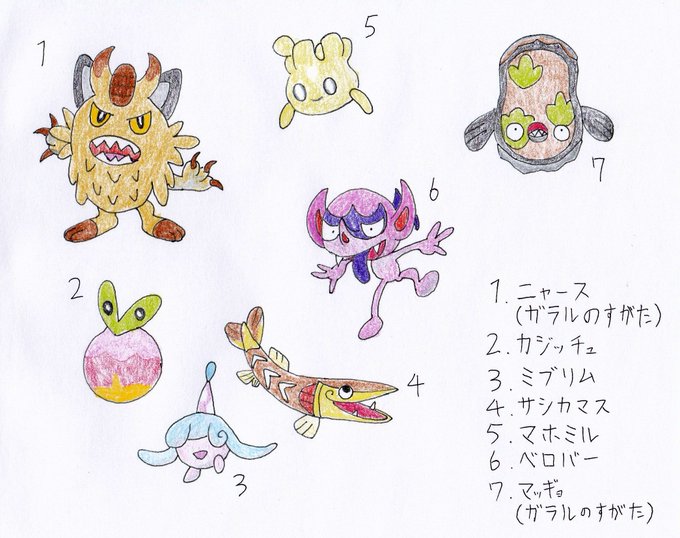 1
5
7
6
2
4
3
1. ニャース
(ガラルのすがた)
2. カジッチュ
3. ミブリム
4. サシカマス
5. マホミル
6. ベロバー
7. マッギョ
(ガラルのすがた)